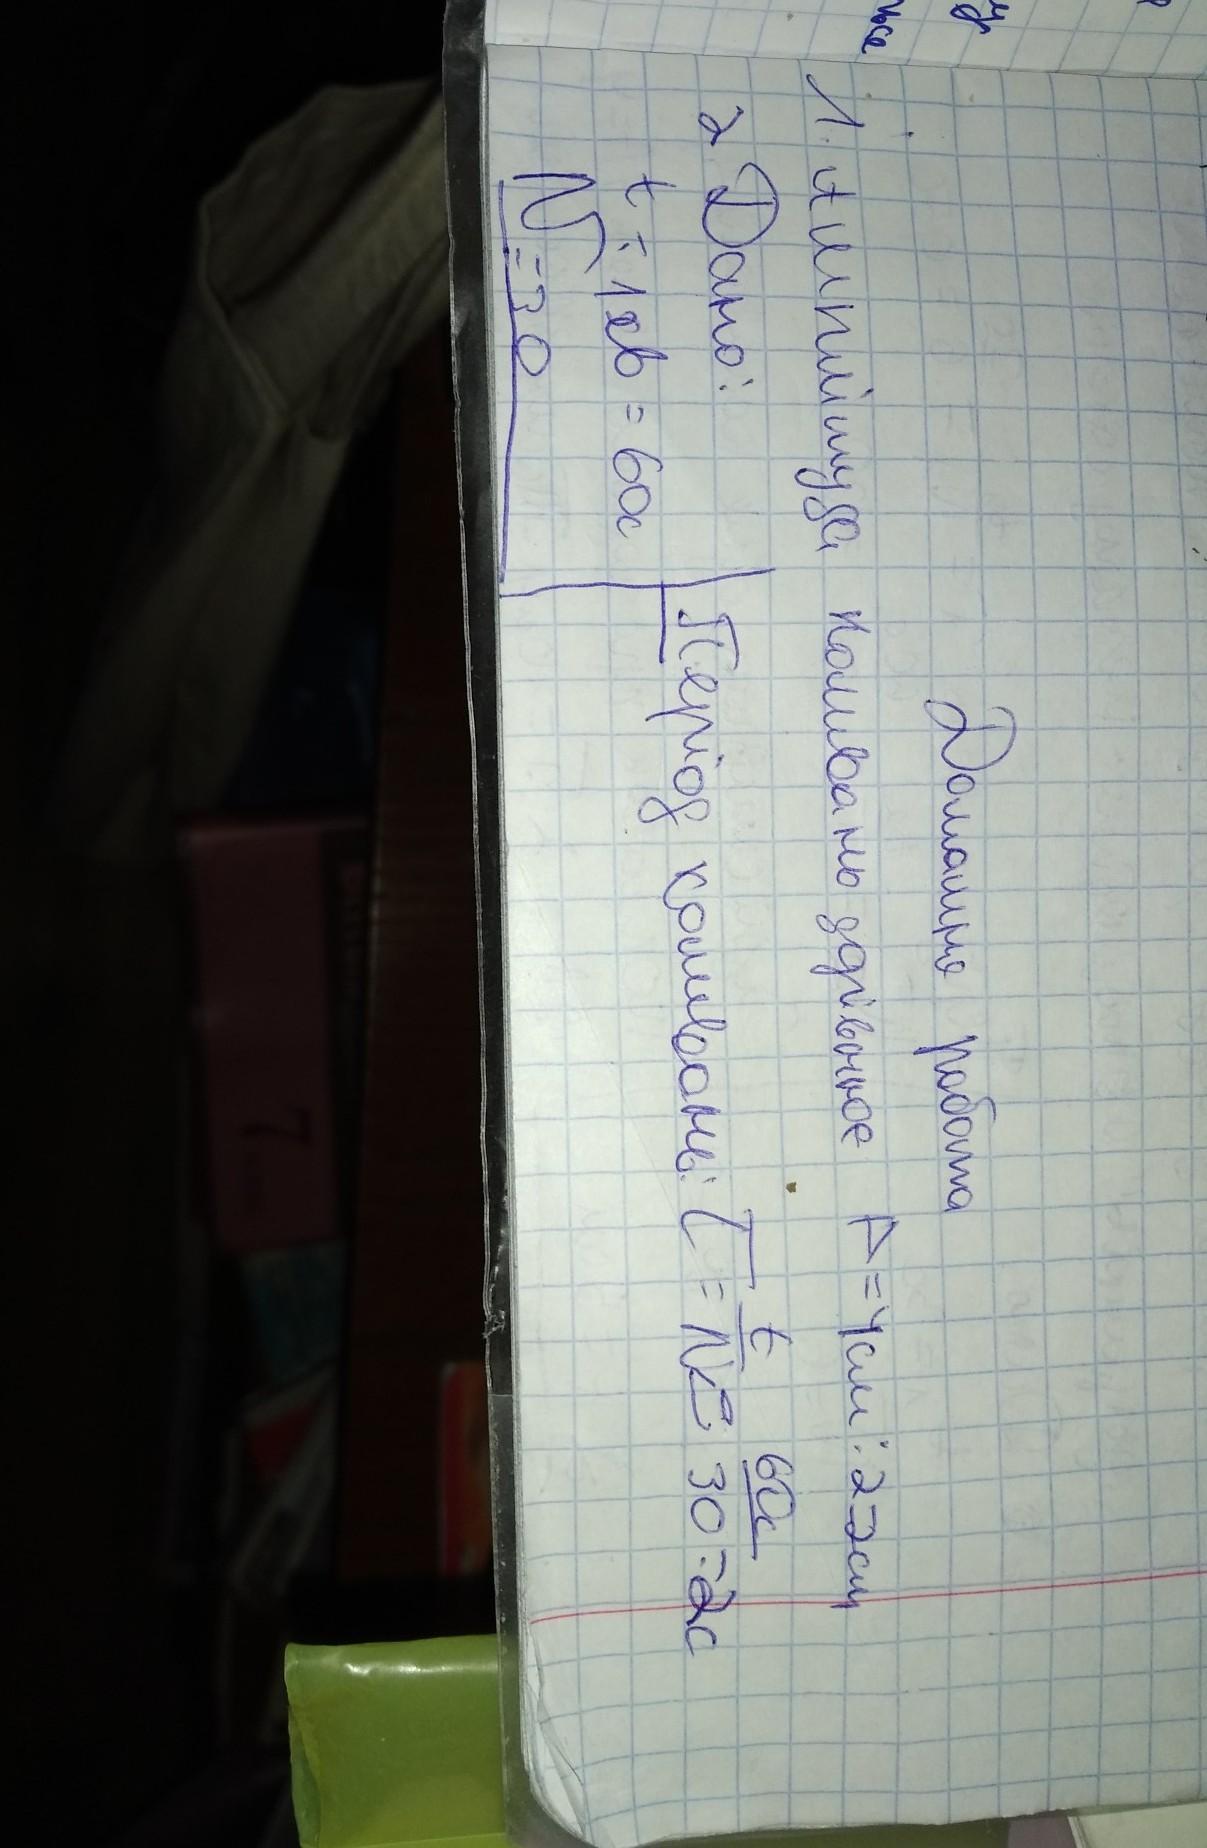 Домашнє робота
1. Амплітуда коливань здрівнює А = 4см : 2 = 2см
2 Дано:
t = 1хв = 60с
N = 30
Період коливань: T = t/N = 60с/30 = 2с
7